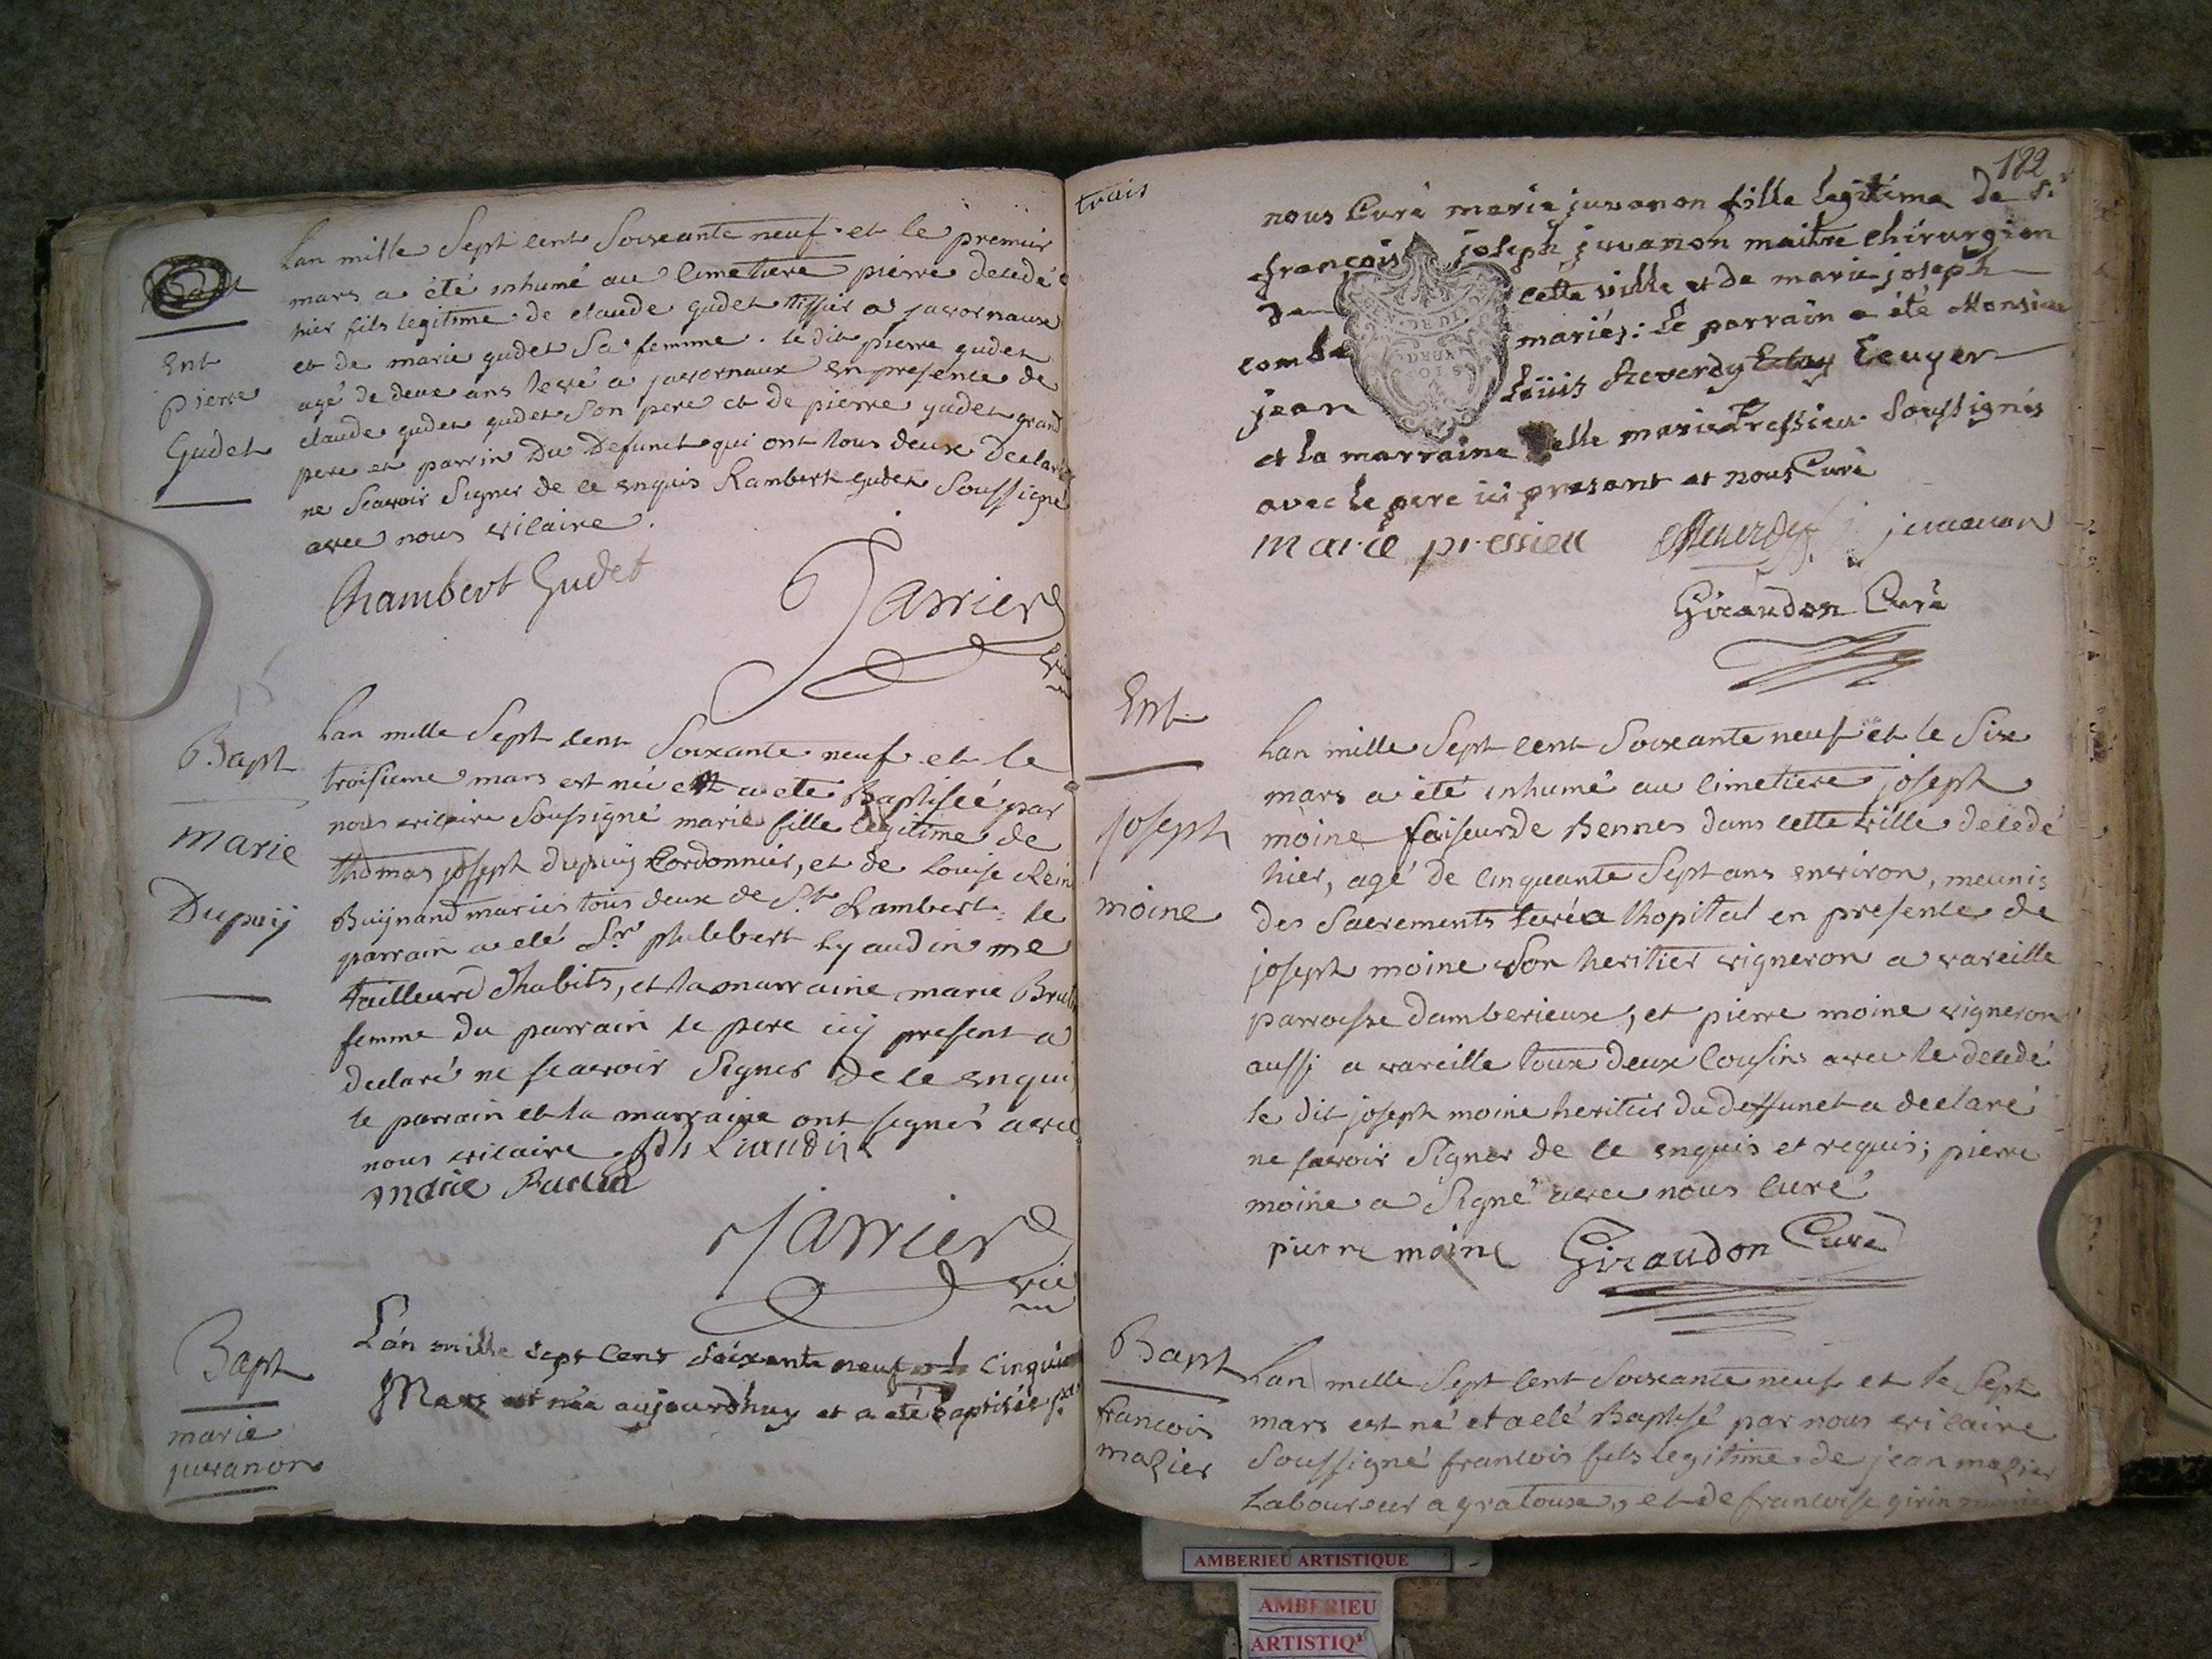 Ent
pierre
Gudet
Lan mille Sept cent Soixante neuf et le premier
mars a été inhumé au Cimetiere pierre decedé
hier fils legitime de claude gudet tissier a javornaux
et de marie gudet Sa femme . le dit pierre gudet
agé de deux ans levé a javornaux en presence de
claude gudet gudet Son pere et de pierre gudet grand
pere et parrin Du Defunct qui ont tous deux Declaré
ne Scavoir Signer de ce enquis Rambert gudet Soussigné
avec nous vicaire .
Rambert Gudet
Jarrier
vic
Bapt
Marie
Dupuij
Lan mille Sept cent Soixante neuf et le
troisieme mars est née et a ete Baptisée par
nous vicaire Soussigné marie fille legitime de
thomas joseph Dupuij Cordonnier, et de Louise Rein
Buijnand mariés tous deux de St Rambert : le
parrain a eté Sr philebert Lyaudin me
tailleur d'habits, et la marraine marie
femme du parrain le pere icij present a
declaré ne scavoir Signer De ce enqui
le parrain et la marraine ont signés avec
nous vicaire Ph Liaudin
marie
Jarrier
vic
Bapt
marie
juvanon
L'an mille sept cent soixante neuf cinquie
Mars est née aujourdhuy et a eté baptisée par
trais
182
nous Curé marie juvanon fille legitime de Sr
francois joseph juvanon maitre chirurgien
de cette ville et de marie joseph
combe mariés: Le parrain a été Monsieur
jean Louis Reverdy Ecuyer
et la marraine elle marie Pressieu Soussignés
avec le pere ici present et nous Curé
marie pressieu Reverdy j juvanon
Giraudon Curé
Ent
joseph
moine
Lan mille Sept cent Soixante neuf et le Six
mars a été inhumé au Cimetiere joseph
moine faiseur de Bennes dans cette ville decedé
hier, agé de cinquante Sept ans environ, meunis
des Sacrements levé a lhopital en presence de
joseph moine Son heritier vigneron a vareille
parroisse damberieux, et pierre moine vigneron
aussi a vareille toux deux Cousins avec le decedé
le dit joseph moine heritier du deffunct a declaré
ne savoir Signer de ce enquis et requis; pierre
moine a Signé avec nous Curé
pierre moine Giraudon Curé
Bapt
francois
mazier
Lan mille Sept Cent Soixante neuf et le Sept
mars est né et a eté Baptisé par nous vicaire
Soussigné francois fils legitime de jean mazier
Laboureur a gratoux, et de francoise girin
AMBERIEU ARTISTIQUE
AMBERIEU
ARTISTIQ